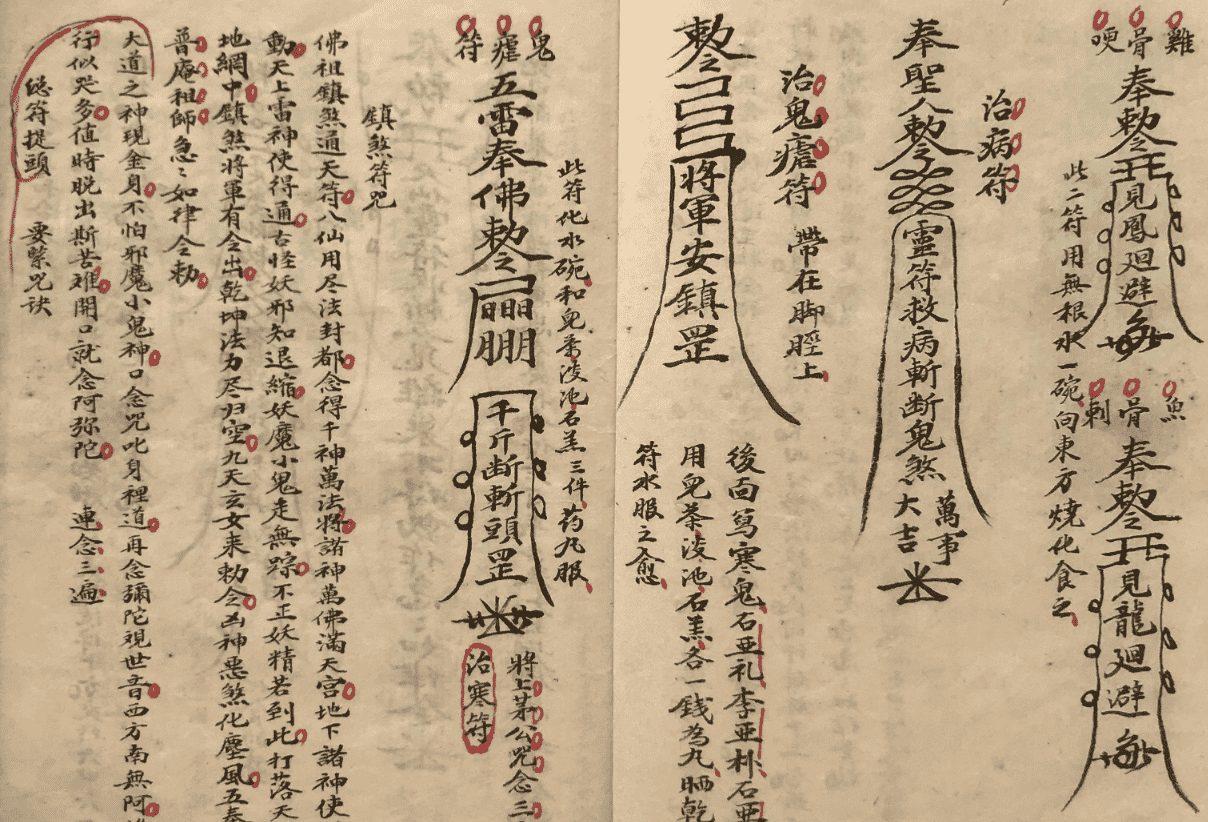 雞骨哽
奉勅令見鳳廻避
魚骨刺
奉勅令見龍廻避
此二符用無根水一碗向東方燒化食之
治病符
奉聖人勅令靈符救病斬断鬼煞
萬事大吉
治鬼瘧符 帶在脚脛上
勅令將軍安鎮罡
後面寫寒鬼石亜礼李亜朴石亜
用兒茶淩池石羔各一錢為丸晒乾
符水服之愈
鬼瘧符
此符化水碗和兒茶淩池石羔三件药丸服
五雷奉佛勅令
千斤断斬頭罡
治寒符
將上茅公咒念三
鎮煞符咒
佛祖鎮煞通天符八仙用尽法封都念得千神萬法將諸神萬佛滿天宮地下諸神使
動天上雷神使得通古怪妖邪知退縮妖魔小鬼走無踪不正妖精若到此打落天
地網中鎮煞將軍有令出乾坤法力尽归空九天玄女来勅令凶神惡煞化塵風五奉
普庵祖師急々如律令勅
大道之神現金身不怕邪魔小鬼神口念咒叱身裡道再念彌陀視世音西方南無阿
行似哭多值時脱出斯苦难開口就念阿弥陀 連念三遍
总符提頭 要緊咒诀